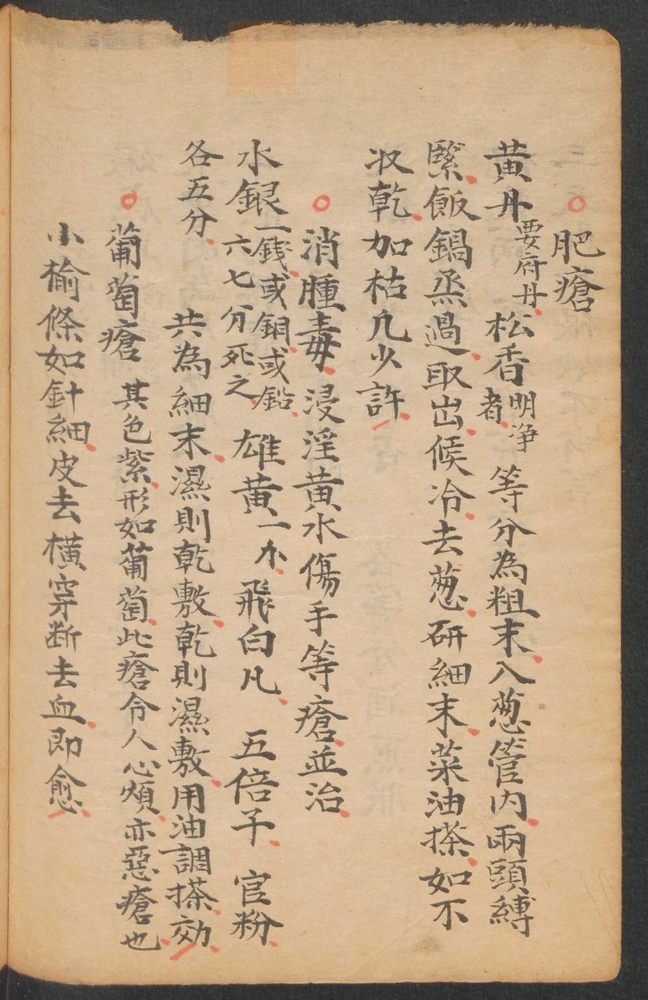 肥瘡
黄丹要府丹松香明净者等分為粗末入葱管内兩頭縛
緊飯鍋烝過取出候冷去葱研細末菜油搽如不
收乾加枯凡少許
消腫毒浸淫黄水傷手等瘡並治
水銀一錢或銅或鉛六七分死之雄黄一小飛白凡五倍子官粉
各五分
共為細末濕則乾敷乾則濕敷用油調搽効
葡萄瘡其色紫形如葡萄此瘡令人心煩亦惡瘡也
小榆條如針細皮去橫穿断去血即愈